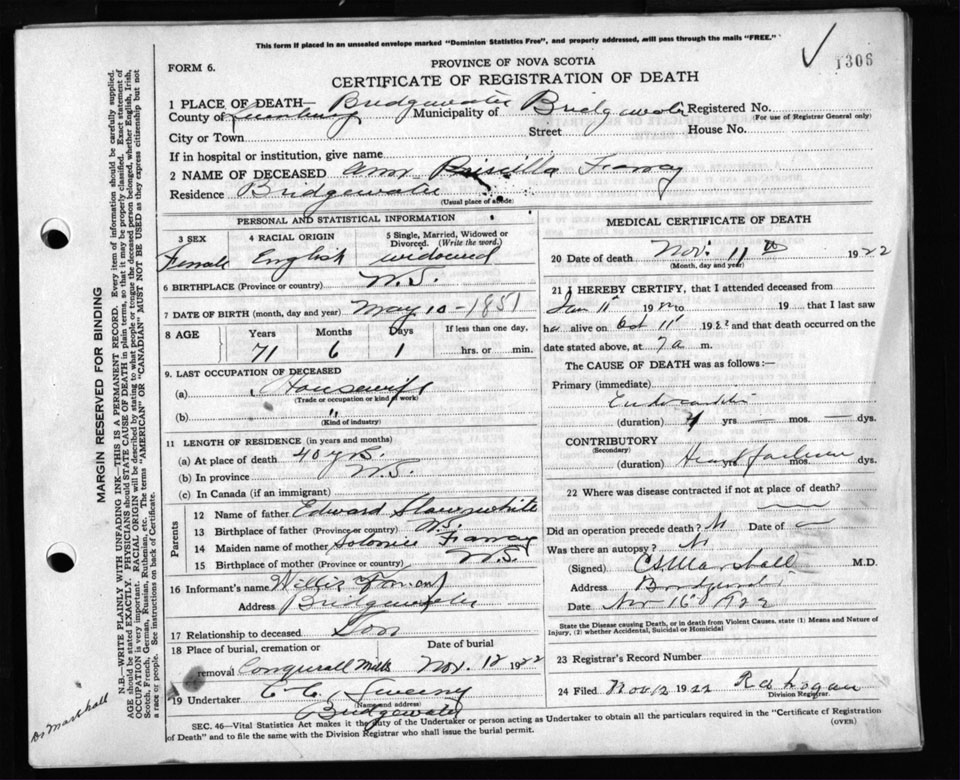 This form if placed in an unsealed envelope marked "Dominion Statistics Free", and properly addressed, will pass through the mails "FREE."
1306
FORM 6.
PROVINCE OF NOVA SCOTIA
CERTIFICATE OF REGISTRATION OF DEATH
1 PLACE OF DEATH— Bridgewater
County of Lunenburg Municipality of Bridgewater Registered No.
(For use of Registrar General only)
City or Town Street House No.
If in hospital or institution, give name
2 NAME OF DECEASED Ann Priscilla
Residence Bridgewater
(Usual place of abode)
PERSONAL AND STATISTICAL INFORMATION
3 SEX 4 RACIAL ORIGIN 5 Single, Married, Widowed or Divorced. (Write the word.)
Female English widowed
6 BIRTHPLACE (Province or country) N.S.
7 DATE OF BIRTH (month, day and year) May 10-1851
8 AGE Years Months Days If less than one day,
71 6 1 hrs. or min.
9. LAST OCCUPATION OF DECEASED
(a) Housewife
(Trade or occupation or kind of work)
(b) "
(Kind of industry)
11 LENGTH OF RESIDENCE (in years and months)
(a) At place of death 40 yrs.
(b) In province N.S.
(c) In Canada (if an immigrant)
Parents
12 Name of father Edward Slauenwhite
13 Birthplace of father (Province or country) N.S.
14 Maiden name of mother
15 Birthplace of mother (Province or country) N.S.
16 Informant's name Willis
Address Bridgewater
17 Relationship to deceased Son
18 Place of burial, cremation or Date of burial
removal Conquerall Mills Nov. 12 1922
19 Undertaker C. C. Sweeny
(Name and address)
Bridgewater
MEDICAL CERTIFICATE OF DEATH
20 Date of death Nov. 11th 1922
(Month, day and year)
21 I HEREBY CERTIFY, that I attended deceased from
11 19 to 19 that I last saw
h alive on Oct 11 1922 and that death occurred on the
date stated above, at 7 a m.
The CAUSE OF DEATH was as follows:—
Primary (immediate)
Endocarditis
(duration) yrs — mos. — dys.
CONTRIBUTORY
(Secondary)
(duration) Heart failure dys.
22 Where was disease contracted if not at place of death?
Did an operation precede death? N Date of —
Was there an autopsy? N
(Signed) Marshall M.D.
Address Bridgewater
Date Nov 16 1922
State the Disease causing Death, or in death from Violent Causes, state (1) Means and Nature of Injury, (2) whether Accidental, Suicidal or Homicidal
23 Registrar's Record Number
24 Filed Nov 12 1922 Logan
Division Registrar.
SEC. 46—Vital Statistics Act makes it the duty of the Undertaker or person acting as Undertaker to obtain all the particulars required in the "Certificate of Registration
of Death" and to file the same with the Division Registrar who shall issue the burial permit.
(OVER)
MARGIN RESERVED FOR BINDING
N.B.—WRITE PLAINLY WITH UNFADING INK—THIS IS A PERMANENT RECORD. Every item of information should be carefully supplied.
AGE should be stated EXACTLY. PHYSICIANS should STATE CAUSE OF DEATH in plain terms, so that it may be properly classified. Exact statement of
OCCUPATION is very important. RACIAL ORIGIN will be described by stating to what people or tongue the deceased person belonged, whether English, Irish,
Scotch, French, German, Russian, Ruthenian, etc. The terms "AMERICAN" OR "CANADIAN" MUST NOT BE USED as they express citizenship but not
a race or people. See instructions on back of Certificate.
Dr Marshall